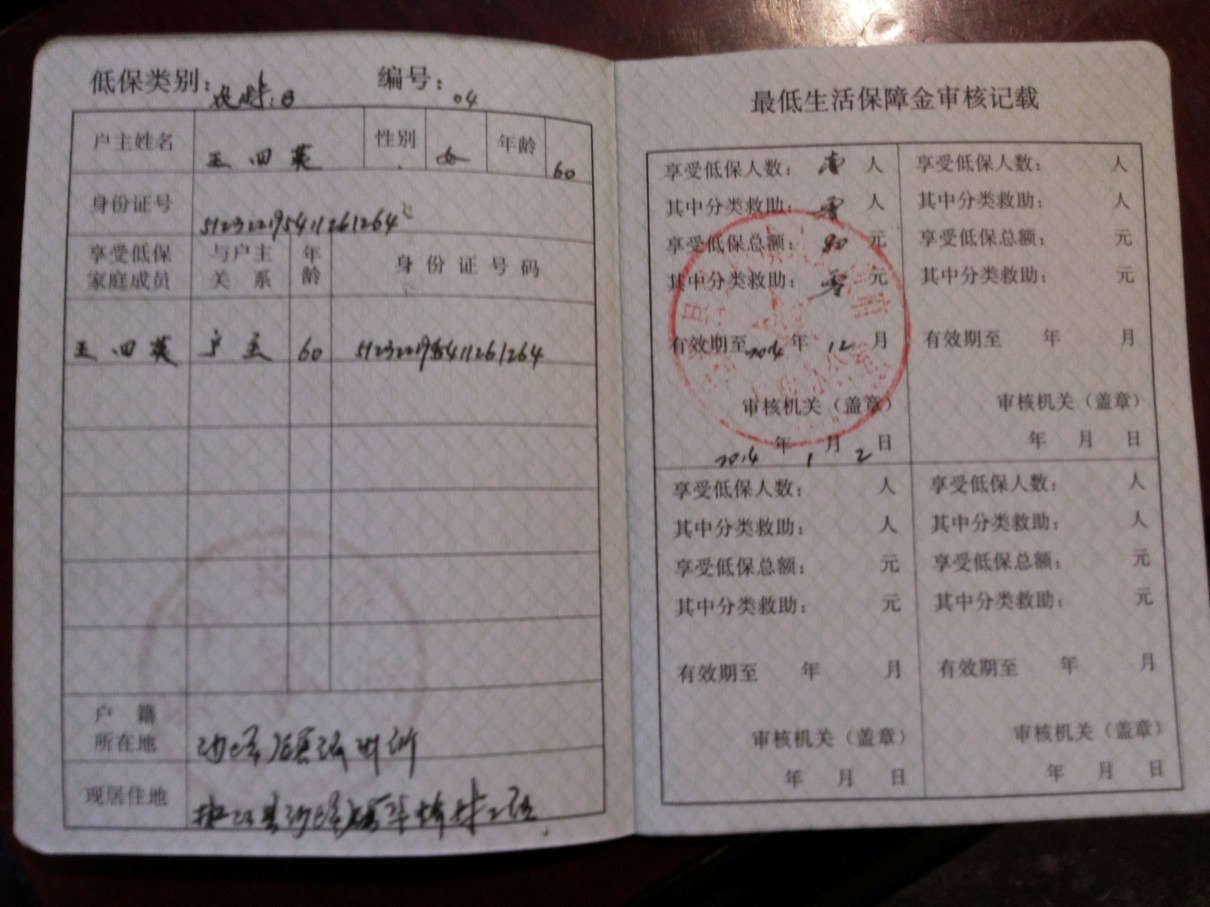 低保类别： 编号：04
户主姓名 王四英 性别 女 年龄 60
身份证号 512322195411261264
享受低保家庭成员 与户主关系 年龄 身份证号码
王四英 户主 60 512322195411261264
户籍所在地
现居住地
最低生活保障金审核记载
享受低保人数：壹人
其中分类救助：零人
享受低保总额：90元
其中分类救助：零元
有效期至2014年12月
审核机关（盖章）
2014年1月2日
享受低保人数： 人
其中分类救助： 人
享受低保总额： 元
其中分类救助： 元
有效期至 年 月
审核机关（盖章）
年 月 日
享受低保人数： 人
其中分类救助： 人
享受低保总额： 元
其中分类救助： 元
有效期至 年 月
审核机关（盖章）
年 月 日
享受低保人数： 人
其中分类救助： 人
享受低保总额： 元
其中分类救助： 元
有效期至 年 月
审核机关（盖章）
年 月 日